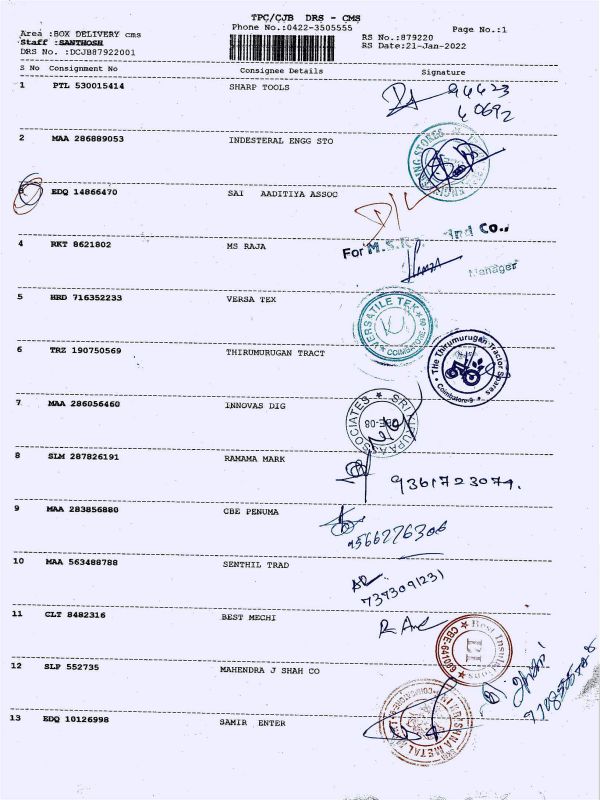 TPC/CJB DRS - CMS
Phone No.:0422-3505555
Page No.:1
Area :BOX DELIVERY cms
Staff :SANTHOSH
DRS No. :DCJB87922001
RS No.:879220
RS Date:21-Jan-2022
S No Consignment No Consignee Details Signature
1 PTL 530015414 SHARP TOOLS
94423
40692
2 MAA 286889053 INDESTERAL ENGG STO
3 EDQ 14866470 SAI AADITIYA ASSOC
D/L
4 RKT 8621802 MS RAJA
For M.S. and Co.,
Manager
5 HRD 716352233 VERSA TEX
VERSATILE TEX
COIMBATORE
6 TRZ 190750569 THIRUMURUGAN TRACT
The Thirumurugan Tractor Spares
Coimbatore-9
7 MAA 286056460 INNOVAS DIG
SRI ASSOCIATES
CBE-08
8 SLM 287826191 RAMAMA MARK
9361723074.
9 MAA 283856880 CBE PENUMA
9566276306
10 MAA 563488788 SENTHIL TRAD
7373091231
11 CLT 8482316 BEST MECHI
Best Insulations
BI
CBE-641
12 SLP 552735 MAHENDRA J SHAH CO
13 EDQ 10126998 SAMIR ENTER
SRI KRISHNA METAL